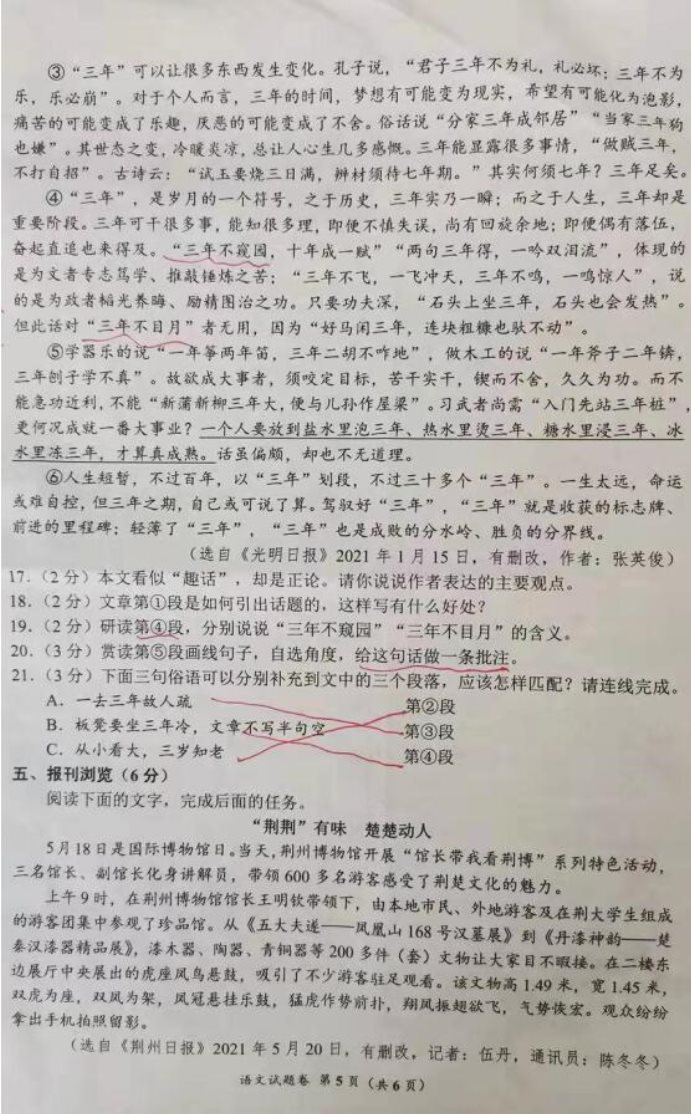 ③“三年”可以让很多东西发生变化。孔子说，“君子三年不为礼，礼必坏；三年不为
乐，乐必崩”。对于个人而言，三年的时间，梦想有可能变为现实，希望有可能化为泡影，
痛苦的可能变成了乐趣，厌恶的可能变成了不舍。俗话说“分家三年成邻居”“当家三年狗
也嫌”。其世态之变，冷暖炎凉，总让人心生几多感慨。三年能显露很多事情，“做贼三年，
不打自招”。古诗云：“试玉要烧三日满，辨材须待七年期。”其实何须七年？三年足矣。
④“三年”，是岁月的一个符号，之于历史，三年实乃一瞬；而之于人生，三年却是
重要阶段。三年可干很多事，能知很多理，即便不慎失误，尚有回旋余地；即便偶有落伍，
奋起直追也来得及。“三年不窥园，十年成一赋”“两句三年得，一吟双泪流”，体现的
是为文者专志笃学、推敲锤炼之苦；“三年不飞，一飞冲天，三年不鸣，一鸣惊人”，说
的是为政者韬光养晦、励精图治之功。只要功夫深，“石头上坐三年，石头也会发热”。
但此话对“三年不目月”者无用，因为“好马闲三年，连块粗糠也驮不动”。
⑤学器乐的说“一年筝两年笛，三年二胡不咋地”，做木工的说“一年斧子二年锛，
三年刨子学不真”。故欲成大事者，须咬定目标，苦干实干，锲而不舍，久久为功。而不
能急功近利，不能“新蒲新柳三年大，便与儿孙作屋梁”。习武者尚需“入门先站三年桩”，
更何况成就一番大事业？一个人要放到盐水里泡三年、热水里烫三年、糖水里浸三年、冰
水里冻三年，才算真成熟。话虽偏颇，却也不无道理。
⑥人生短暂，不过百年，以“三年”划段，不过三十多个“三年”。一生太远，命运
或难自控，但三年之期，自己或可说了算。驾驭好“三年”，“三年”就是收获的标志牌、
前进的里程碑；轻薄了“三年”，“三年”也是成败的分水岭、胜负的分界线。
（选自《光明日报》2021年1月15日，有删改，作者：张英俊）
17.（2分）本文看似“趣话”，却是正论。请你说说作者表达的主要观点。
18.（2分）文章第①段是如何引出话题的，这样写有什么好处？
19.（2分）研读第④段，分别说说“三年不窥园”“三年不目月”的含义。
20.（3分）赏读第⑤段画线句子，自选角度，给这句话做一条批注。
21.（3分）下面三句俗语可以分别补充到文中的三个段落，应该怎样匹配？请连线完成。
A．一去三年故人疏 第②段
B．板凳要坐三年冷，文章不写半句空 第③段
C．从小看大，三岁知老 第④段
五、报刊浏览（6分）
阅读下面的文字，完成后面的任务。
“荆荆”有味 楚楚动人
5月18日是国际博物馆日。当天，荆州博物馆开展“馆长带我看荆博”系列特色活动，
三名馆长、副馆长化身讲解员，带领600多名游客感受了荆楚文化的魅力。
上午9时，在荆州博物馆馆长王明钦带领下，由本地市民、外地游客及在荆大学生组成
的游客团集中参观了珍品馆。从《五大夫遂——凤凰山168号汉墓展》到《丹漆神韵——楚
秦汉漆器精品展》，漆木器、陶器、青铜器等200多件（套）文物让大家目不暇接。在二楼东
边展厅中央展出的虎座凤鸟悬鼓，吸引了不少游客驻足观看。该文物高1.49米，宽1.45米，
双虎为座，双凤为架，凤冠悬挂乐鼓，猛虎作势前扑，翔凤振翅欲飞，气势恢宏。观众纷纷
拿出手机拍照留影。
（选自《荆州日报》2021年5月20日，有删改，记者：伍丹，通讯员：陈冬冬）
语文试题卷 第5页（共6页）